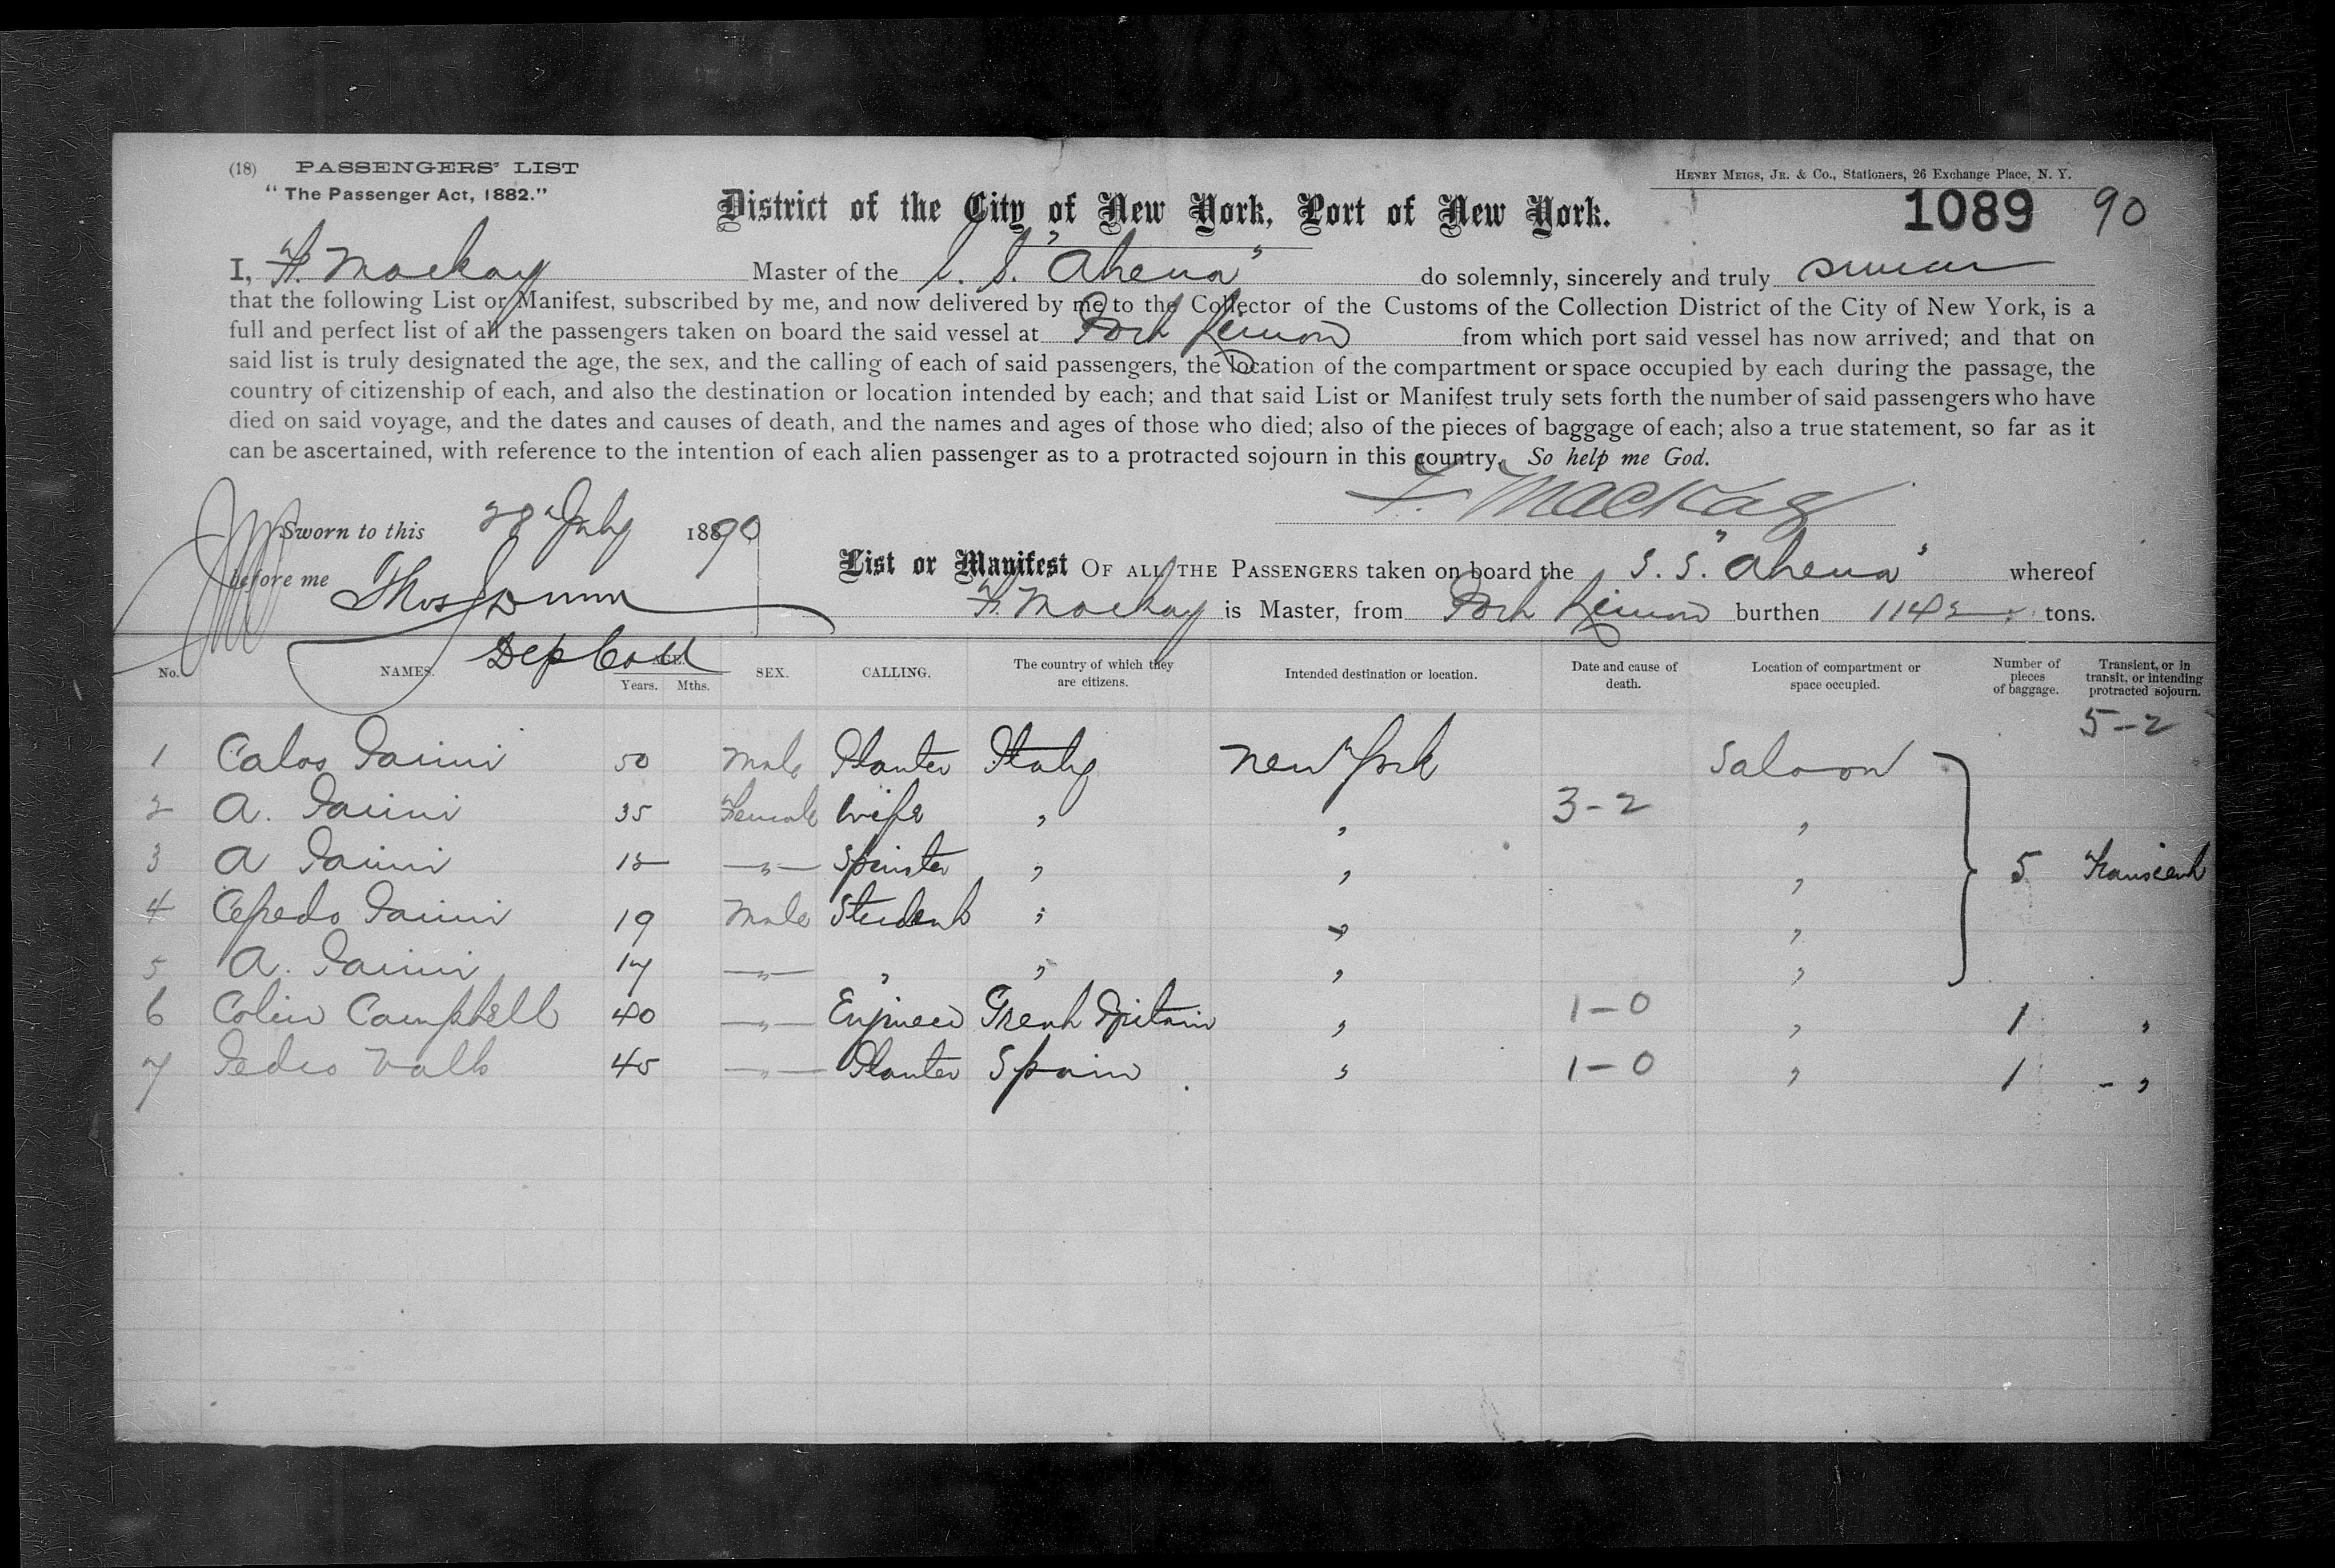 (18) PASSENGERS' LIST
"The Passenger Act, 1882."
HENRY MEIGS, JR. & Co., Stationers, 26 Exchange Place, N. Y.
District of the City of New York, Port of New York.
1089 90
I, F. Mackay Master of the S. S. "Ahena" do solemnly, sincerely and truly swear
that the following List or Manifest, subscribed by me, and now delivered by me to the Collector of the Customs of the Collection District of the City of New York, is a
full and perfect list of all the passengers taken on board the said vessel at Port Limon from which port said vessel has now arrived; and that on
said list is truly designated the age, the sex, and the calling of each of said passengers, the location of the compartment or space occupied by each during the passage, the
country of citizenship of each, and also the destination or location intended by each; and that said List or Manifest truly sets forth the number of said passengers who have
died on said voyage, and the dates and causes of death, and the names and ages of those who died; also of the pieces of baggage of each; also a true statement, so far as it
can be ascertained, with reference to the intention of each alien passenger as to a protracted sojourn in this country. So help me God.
F. Mackay
Sworn to this 28th July 1890
before me Thos Dunn
Dep Coll
List or Manifest OF ALL THE PASSENGERS taken on board the S. S. "Ahena" whereof
F. Mackay is Master, from Port Limon burthen 1142 tons.
No. NAMES. AGE. Years. Mths. SEX. CALLING. The country of which they are citizens. Intended destination or location. Date and cause of death. Location of compartment or space occupied. Number of pieces of baggage. Transient, or in transit, or intending protracted sojourn.
5-2
1 Calos 50 Male Planter Italy New York Saloon
2 A. 35 Female Wife " " 3-2 "
3 A 15 " Spinster " " " 5 Transient
4 19 Male Student " " "
5 A. 17 " " " " "
6 Colin Campbell 40 " Engineer Great Britain " 1-0 " 1 "
7 Pedro Valls 45 " Planter Spain " 1-0 " 1 - "